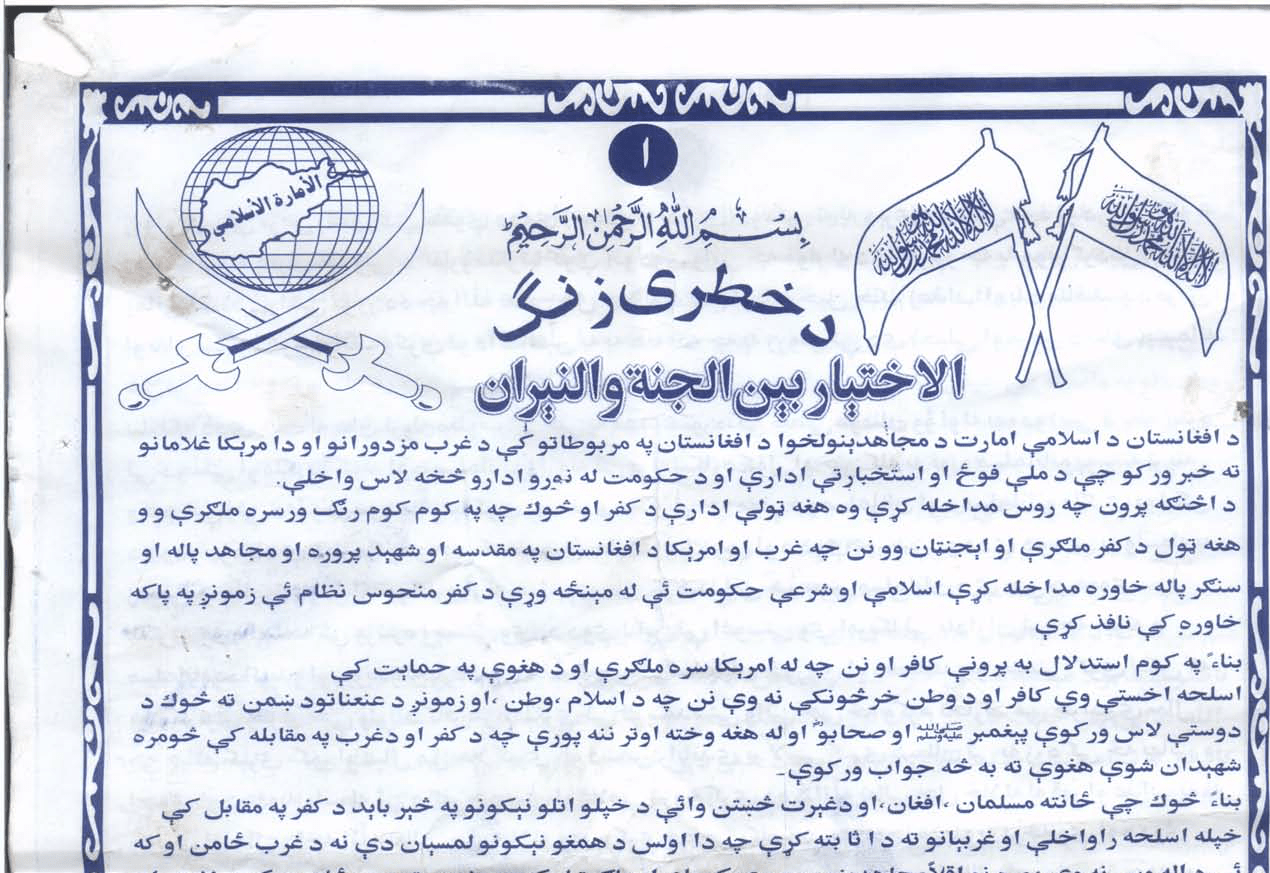 ١
بسم الله الرحمن الرحيم
الأمارة الإسلامي
لا إله إلا الله محمد رسول الله
لا إله إلا الله محمد رسول الله
د خطری زنگ
الاختیار بین الجنة والنیران
د افغانستان د اسلامي امارت د مجاهد پنولخوا د افغانستان په مربوطاتو کې د غرب مزدورانو او دا مریکا غلامانو
ته خبر ورکو چې د ملي فوځ او استخباراتي اداري او د حکومت له نورو ادارو څخه لاس واخلي.
د اڅنګه پرون چه روس مداخله کړې وه هغه ټولي اداري د کفر او څوك چه په کوم کوم رنګ ورسره ملګري وو
هغه ټول د کفر ملګري او ایجنټان وو نن چه غرب او امریکا د افغانستان په مقدسه او شهید پروره او مجاهد پاله او
سنګر پاله خاوره مداخله کړې اسلامي او شرعي حکومت ئې له مینځه وړې د کفر منحوس نظام ئې زمونږ په پاکه
خاوره کي نافذ کړې.
بناءً په کوم استدلال به پرونې کافر او نن چه له امریکا سره ملګري او د هغوي په حمایت کې
اسلحه اخستې وي کافر او د وطن خرڅونکي نه وي نن چه د اسلام ،وطن ،او زمونږ د عنعناتو دښمن ته څوك د
دوستي لاس ورکوي پیغمبر ﷺ او صحابو اوله هغه وخته اوتر ننه پورې چه د کفر او دغرب په مقابله کي څومره
شهیدان شوي هغوي ته به څه جواب ورکوي.
بناءً څوك چې ځانته مسلمان ،افغان ،او دغیرت څښتن وائې د خپلو اتلو نیکونو په څیر باید د کفر په مقابل کي
خپله اسلحه راواخلي او غربیانو ته دا ثابته کړې چه دا اولس د همغو نیکونو لمسیان دي نه د غرب ځامن او که